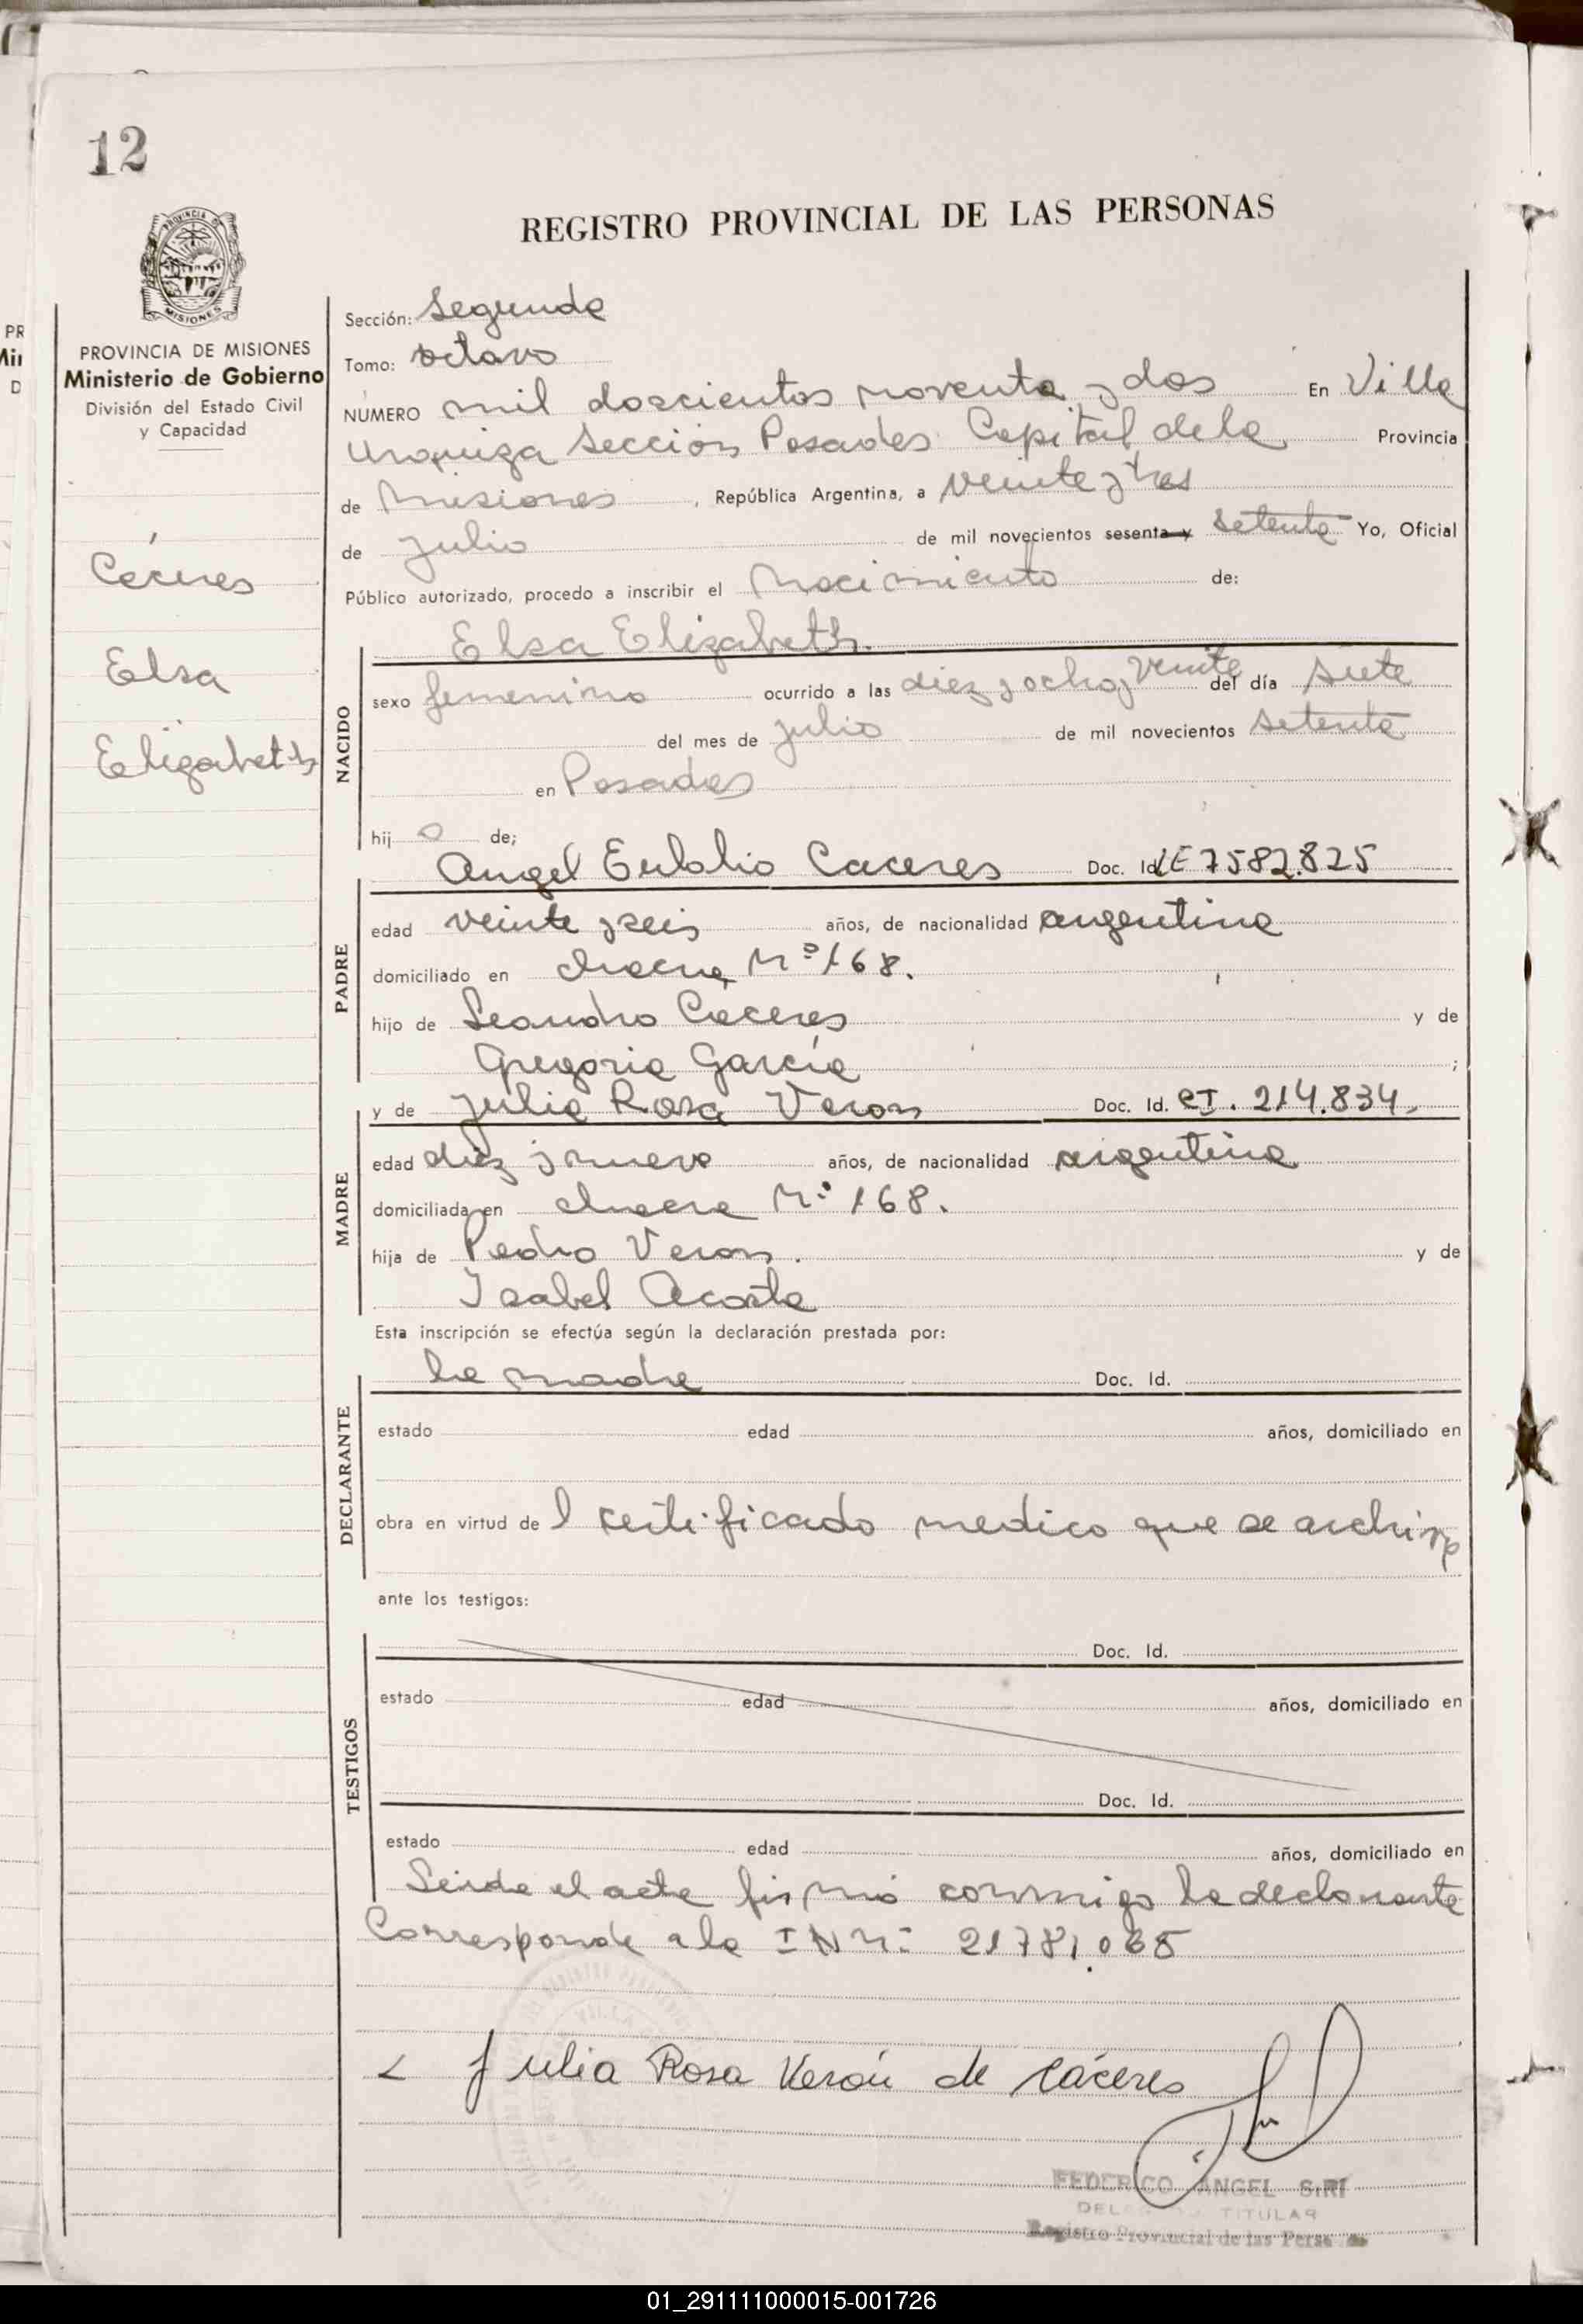 12
REGISTRO PROVINCIAL DE LAS PERSONAS
PROVINCIA DE MISIONES
Ministerio de Gobierno
División del Estado Civil
y Capacidad
Cáceres
Elsa
Elizabeth
Sección: Segunda
Tomo: octavo
NÚMERO mil doscientos noventa y dos En Villa
Urquiza Sección Posadas Capital de la Provincia
de Misiones, República Argentina, a veinte y tres
de Julio de mil novecientos sesenta y setenta Yo, Oficial
Público autorizado, procedo a inscribir el Nacimiento de:
Elsa Elizabeth.
NACIDO
sexo femenino ocurrido a las diez y ocho y veinte del día siete
del mes de Julio de mil novecientos setenta
en Posadas
hij a de;
PADRE
Angel Eulolio Caceres Doc. Id. LE 7582.825
edad veinte y seis años, de nacionalidad argentina
domiciliado en chacra Nº 168.
hijo de Leandro Cáceres y de
Gregoria García ;
MADRE
y de Julia Rosa Veron Doc. Id. CI. 214.834.
edad diez y nueve años, de nacionalidad argentina
domiciliada en chacra Nº 168.
hija de Pedro Veron. y de
Isabel Acosta
Esta inscripción se efectúa según la declaración prestada por:
DECLARANTE
la madre Doc. Id.
estado edad años, domiciliado en
obra en virtud de l certificado medico que se archiva
ante los testigos:
TESTIGOS
Doc. Id.
estado edad años, domiciliado en
Doc. Id.
estado edad años, domiciliado en
Leida el acta firmó conmigo la declarante
Corresponde a la I N Nº 21781.065
Julia Rosa Verón de Cáceres
FEDERICO ANGEL SIRI
TITULAR
Registro Provincial de las Personas
01_291111000015-001726